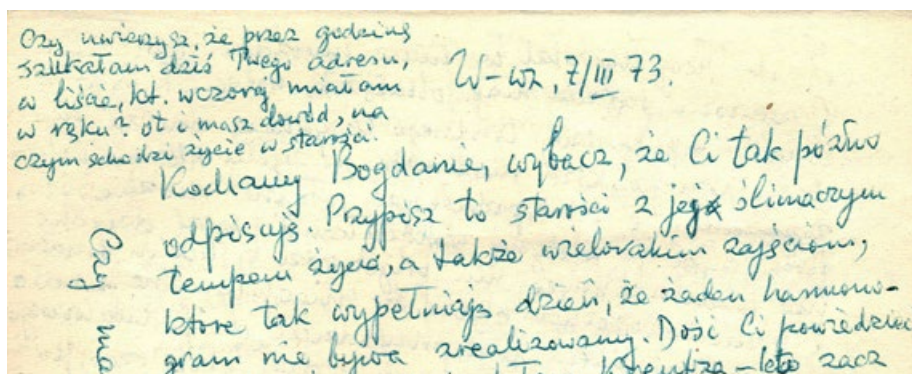 Czy uwierzysz, że przez godzinę
szukałam dziś Twego adresu,
w liście, kt. wczoraj miałam
w ręku? Ot i masz dowód, na
czym schodzi życie w starości.
W-wa, 7/III 73.
Kochany Bogdanie, wybacz, że Ci tak późno
odpisuję. Przypisz to starości z jej ślimaczym
tempem życia, a także wielorakim zajściom,
które tak wypełniają dzień, że żaden harmono-
gram nie bywa zrealizowany. Dość Ci powiedzieć